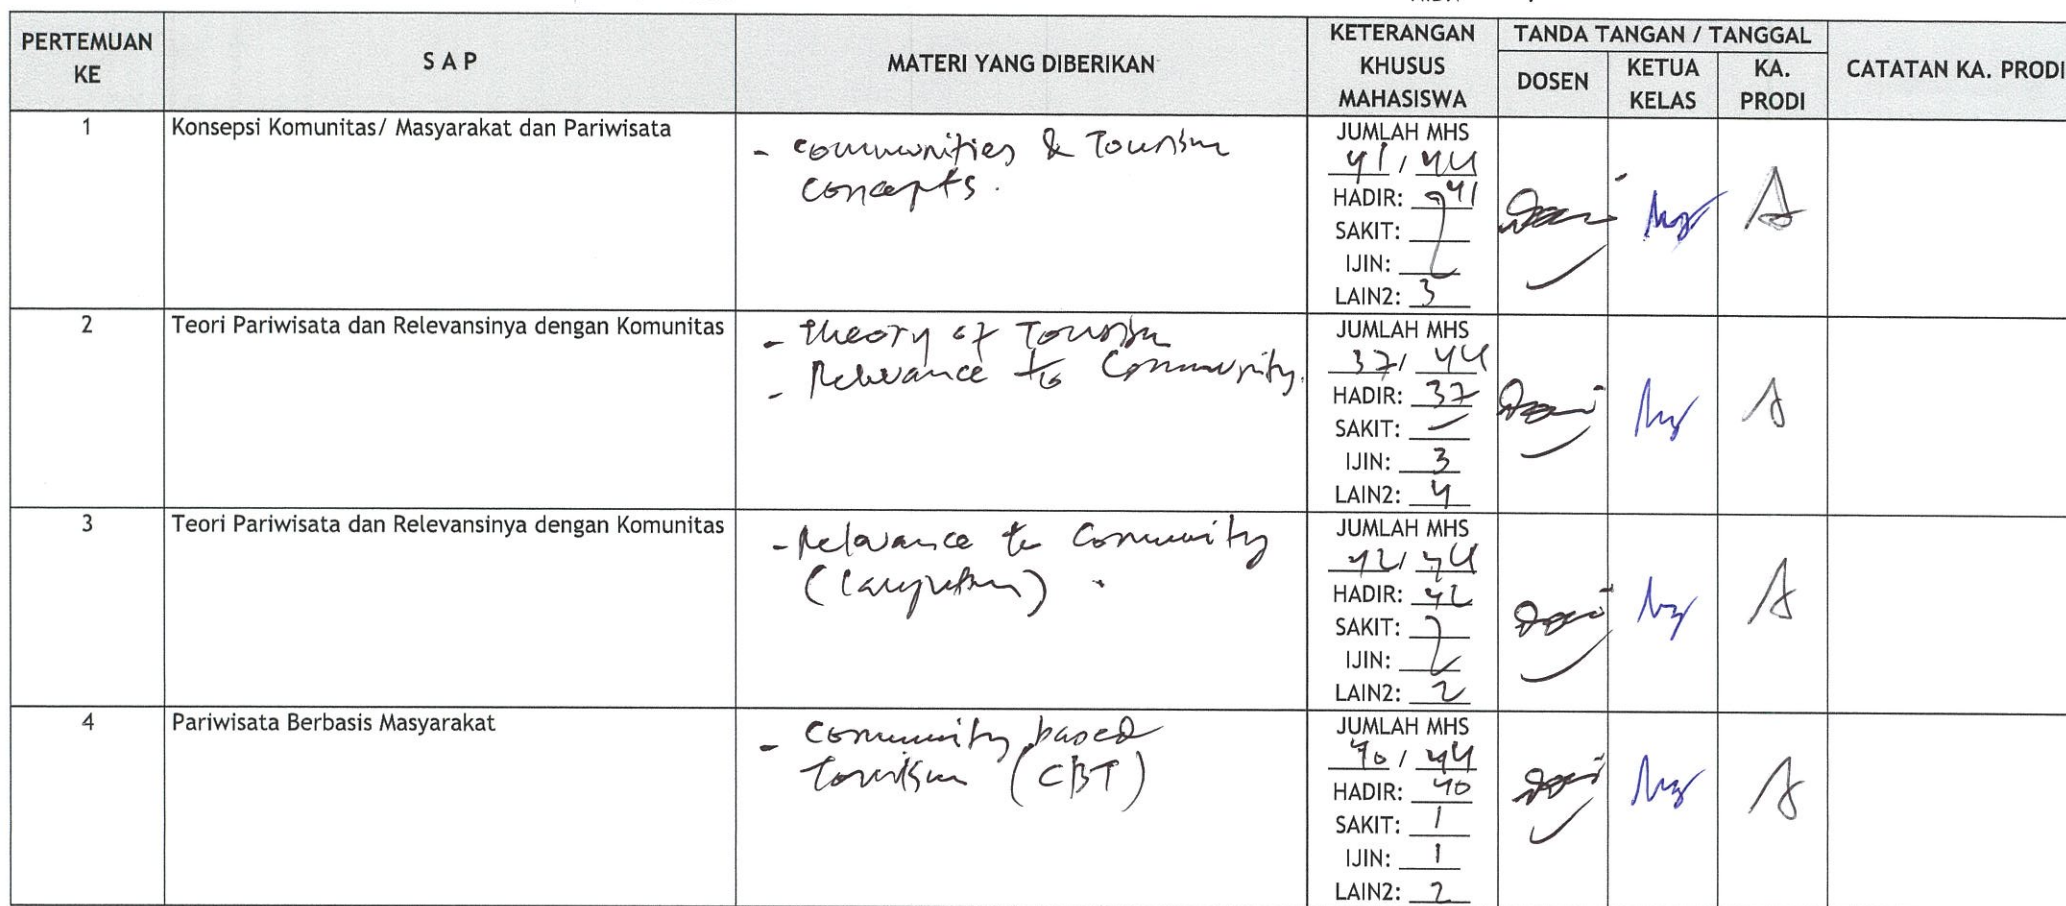 PERTEMUAN KE
S A P
MATERI YANG DIBERIKAN
KETERANGAN KHUSUS MAHASISWA
TANDA TANGAN / TANGGAL
DOSEN
KETUA KELAS
KA. PRODI
CATATAN KA. PRODI
1
Konsepsi Komunitas/ Masyarakat dan Pariwisata
- communities & Tourism
concepts.
JUMLAH MHS
41 / 44
HADIR: 41
SAKIT:
IJIN:
LAIN2: 3
2
Teori Pariwisata dan Relevansinya dengan Komunitas
- theory of Tourism
- Relevance to Community.
JUMLAH MHS
37/ 44
HADIR: 37
SAKIT: -
IJIN: 3
LAIN2: 4
3
Teori Pariwisata dan Relevansinya dengan Komunitas
- Relevance to Community
(lanjutan) .
JUMLAH MHS
42/ 44
HADIR: 42
SAKIT:
IJIN:
LAIN2: 2
4
Pariwisata Berbasis Masyarakat
- Community based
tourism (CBT)
JUMLAH MHS
40 / 44
HADIR: 40
SAKIT: 1
IJIN: 1
LAIN2: 2